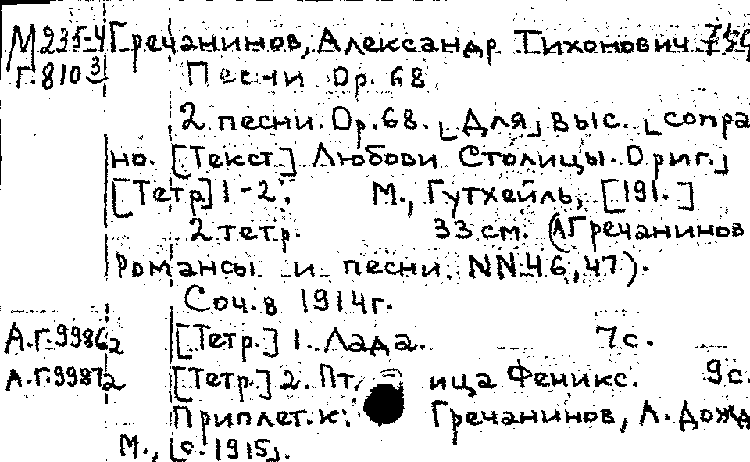 М235-4 Гречанинов, Александр Тихонович
Г.810 3 Песни Op. 68
2 песни. Op. 68. [Для] выс. [сопра
но. [Текст] Любови Столицы. Ориг.]
[Тетр] 1-2. М., Гутхейль, [191.]
2 тетр. 33 см. (А Гречанинов
Романсы и песни. NN 46, 47).
Соч. в 1914 г.
А.Г.9986 2 [Тетр.] 1. Лада. 7 с.
А.Г.9987 2 [Тетр.] 2. Пт ица Феникс. 9 с.
Приплет. к: Гречанинов, А. Дожд
М., [с. 1915].